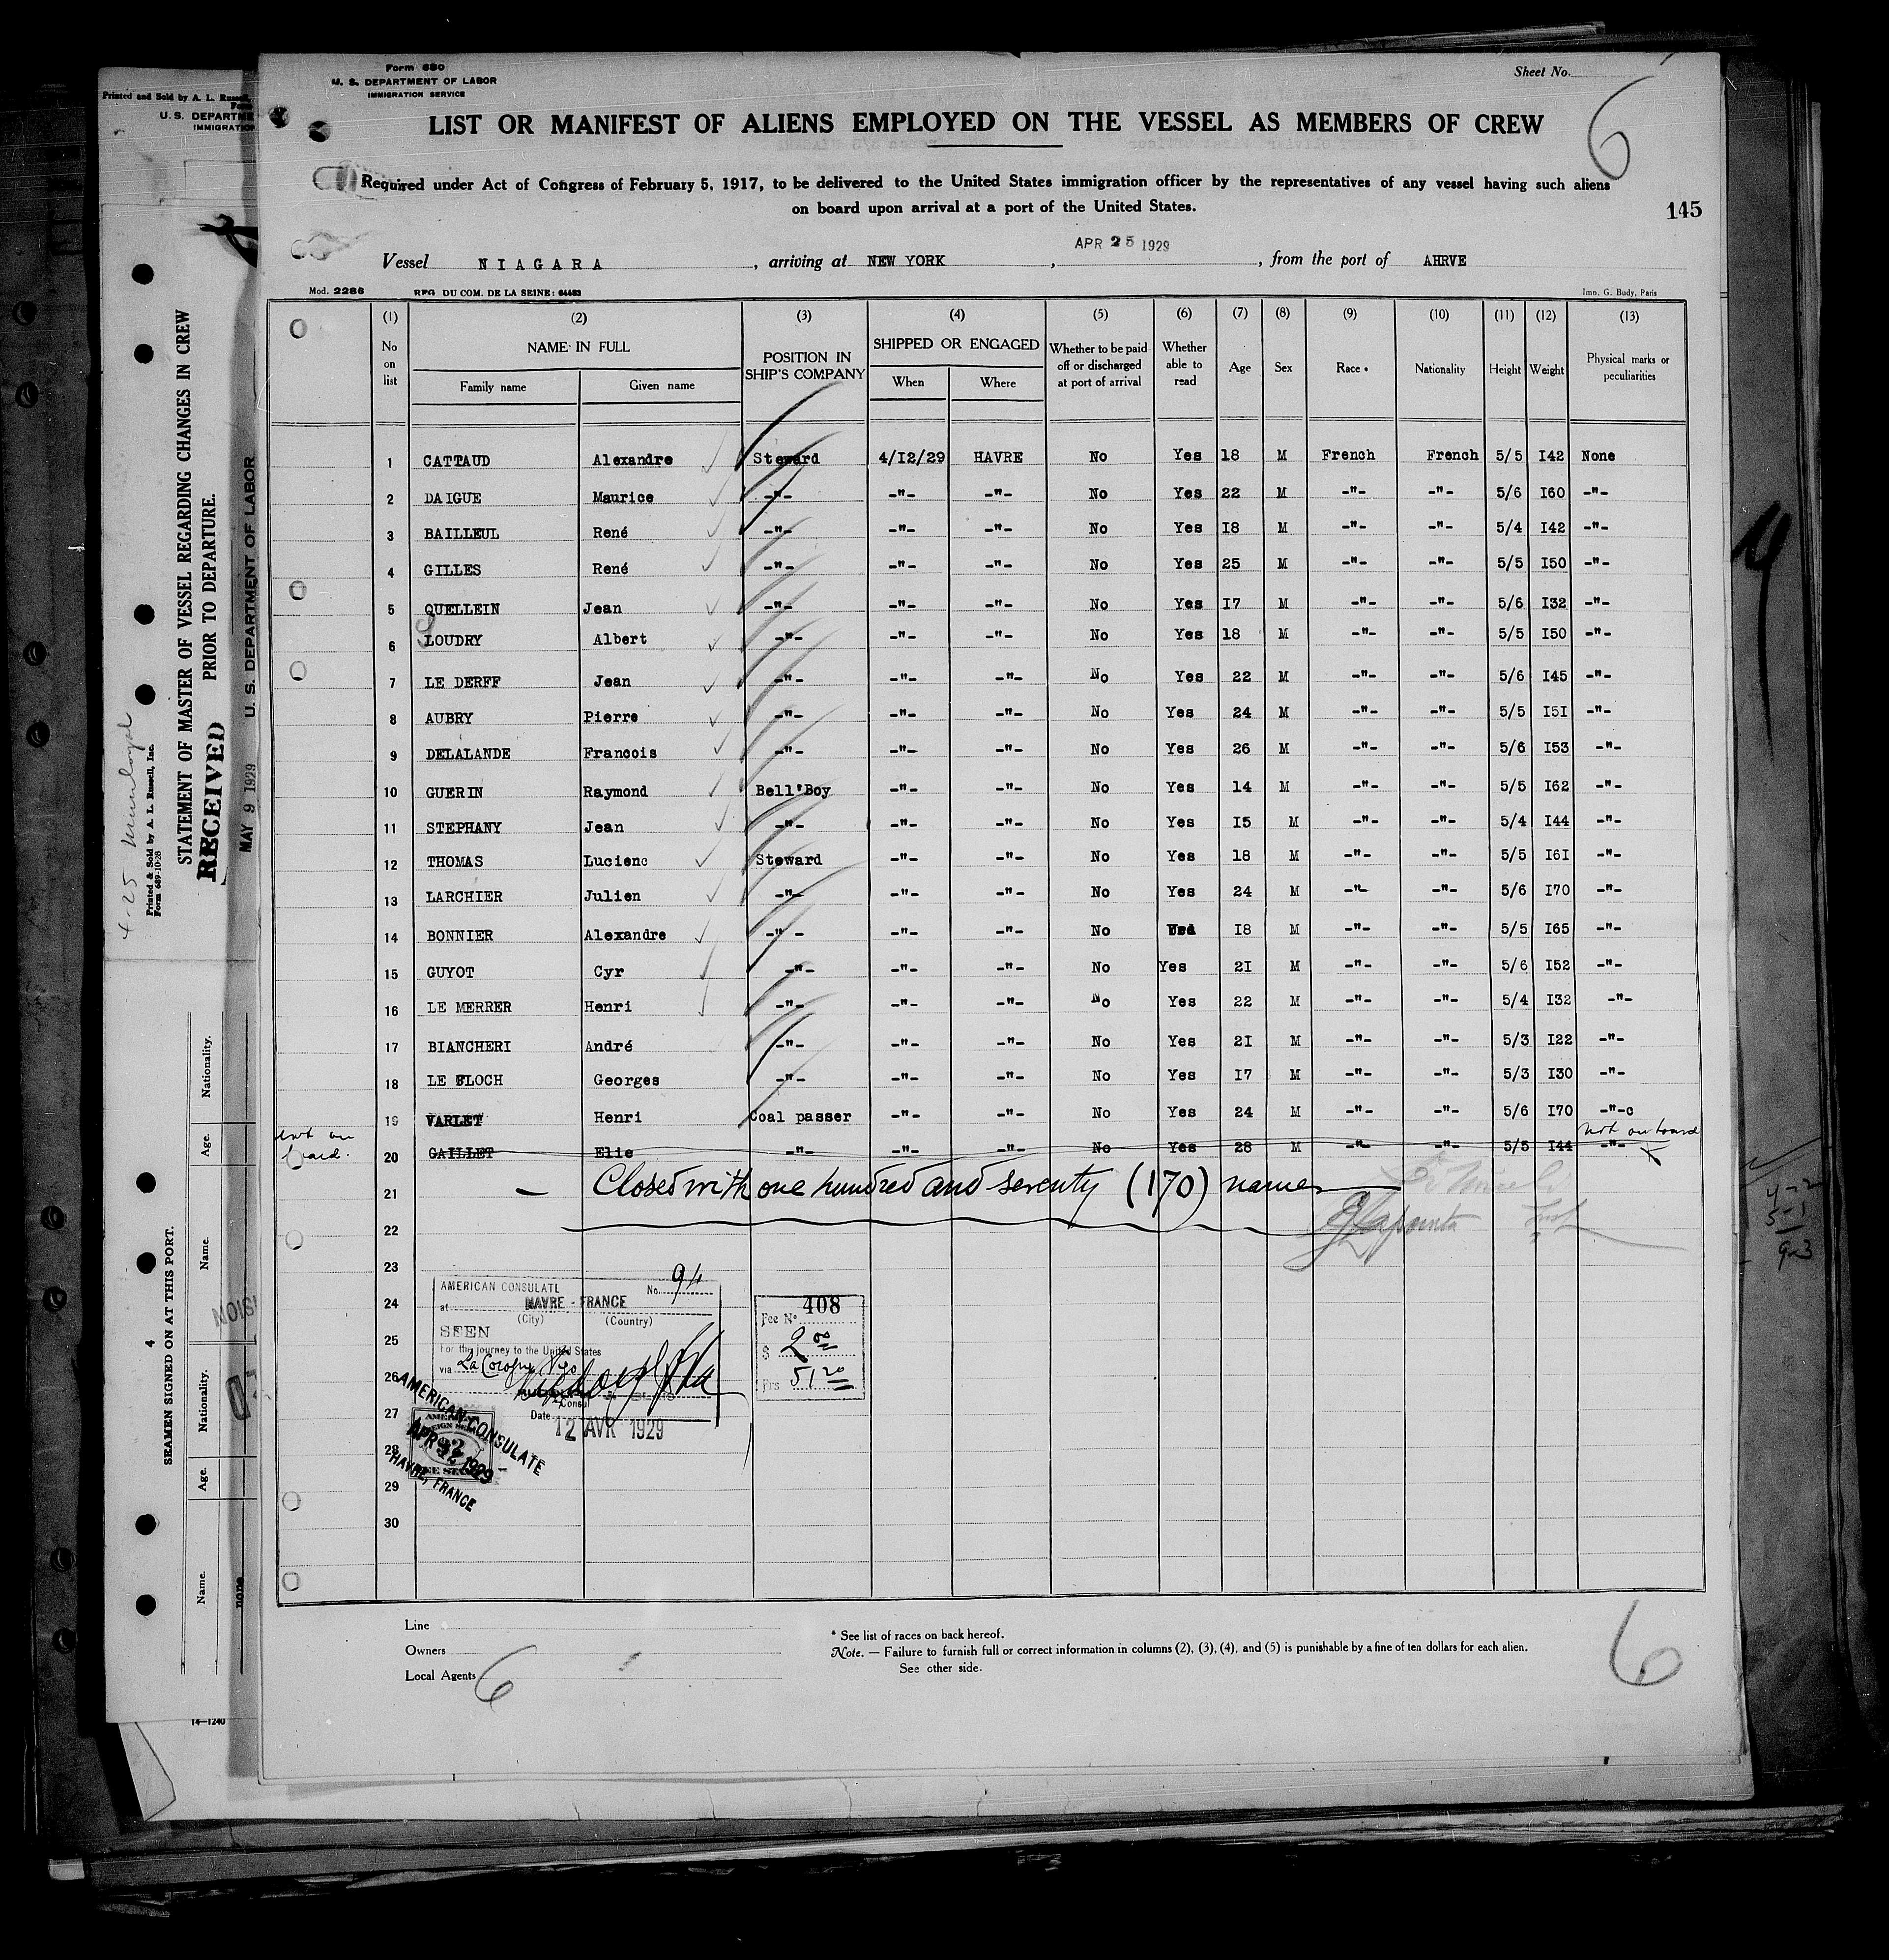 Form 680
U. S. DEPARTMENT OF LABOR
IMMIGRATION SERVICE
Sheet No.
6
LIST OR MANIFEST OF ALIENS EMPLOYED ON THE VESSEL AS MEMBERS OF CREW
Required under Act of Congress of February 5, 1917, to be delivered to the United States immigration officer by the representatives of any vessel having such aliens
on board upon arrival at a port of the United States.
145
APR 25 1929
Vessel NIAGARA, arriving at NEW YORK, , from the port of AHRVE
Mod. 2286 REG DU COM. DE LA SEINE: 64483 Imp. G. Budy, Paris
(1) (2) (3) (4) (5) (6) (7) (8) (9) (10) (11) (12) (13)
No on list NAME IN FULL Family name Given name POSITION IN SHIP'S COMPANY SHIPPED OR ENGAGED When Where Whether to be paid off or discharged at port of arrival Whether able to read Age Sex Race * Nationality Height Weight Physical marks or peculiarities
1 CATTAUD Alexandre Steward 4/I2/29 HAVRE No Yes 18 M French French 5/5 I42 None
2 DAIGUE Maurice -"- -"- -"- No Yes 22 M -"- -"- 5/6 I60 -"-
3 BAILLEUL René -"- -"- -"- No Yes I8 M -"- -"- 5/4 I42 -"-
4 GILLES René -"- -"- -"- No Yes 25 M -"- -"- 5/5 I50 -"-
5 QUELLEIN Jean -"- -"- -"- No Yes I7 M -"- -"- 5/6 I32 -"-
6 LOUDRY Albert -"- -"- -"- No Yes 18 M -"- -"- 5/5 I50 -"-
7 LE DERFF Jean -"- -"- -"- No Yes 22 M -"- -"- 5/6 I45 -"-
8 AUBRY Pierre -"- -"- -"- No Yes 24 M -"- -"- 5/5 I5I -"-
9 DELALANDE Francois -"- -"- -"- No Yes 26 M -"- -"- 5/6 I53 -"-
10 GUERIN Raymond Bell'Boy -"- -"- No Yes 14 M -"- -"- 5/5 I62 -"-
11 STEPHANY Jean -"- -"- -"- No Yes I5 M -"- -"- 5/4 I44 -"-
12 THOMAS Lucienc Steward -"- -"- No Yes 18 M -"- -"- 5/5 I6I -"-
13 LARCHIER Julien -"- -"- -"- No Yes 24 M -"- -"- 5/6 I70 -"-
14 BONNIER Alexandre -"- -"- -"- No I8 M -"- -"- 5/5 I65 -"-
15 GUYOT Cyr -"- -"- -"- No Yes 2I M -"- -"- 5/6 I52 -"-
16 LE MERRER Henri -"- -"- -"- No Yes 22 M -"- -"- 5/4 I32 -"-
17 BIANCHERI André -"- -"- -"- No Yes 2I M -"- -"- 5/3 I22 -"-
18 LE FLOCH Georges -"- -"- -"- No Yes I7 M -"- -"- 5/3 I30 -"-
19 VARLET Henri Coal passer -"- -"- No Yes 24 M -"- -"- 5/6 I70 -"-c
not on board. 20 GAILLET Elie -"- -"- -"- No Yes 28 M -"- -"- 5/5 I44 -"- not on board
21 — Closed with one hundred and seventy (170) names
22
23
24
25
26
27
28
29
30
AMERICAN CONSULATE No. 94
at HAVRE - FRANCE
(City) (Country)
SEEN
For the journey to the United States
via La Corogne Vigo
Consul
Date 12 AVR 1929
Fee No 408
$ 2.00
Frs 51 20
AMERICAN CONSULATE
APR 12 1929
HAVRE, FRANCE
Line
Owners
Local Agents
6
* See list of races on back hereof.
Note. — Failure to furnish full or correct information in columns (2), (3), (4), and (5) is punishable by a fine of ten dollars for each alien.
See other side.
6
Printed and Sold by A. L. Russell,
Form
U.S. DEPARTME
IMMIGRATION
STATEMENT OF MASTER OF VESSEL REGARDING CHANGES IN CREW
PRIOR TO DEPARTURE.
RECEIVED
MAY 9 1929 U. S. DEPARTMENT OF LABOR
4-25
Printed & Sold by A. L. Russell, Inc.
Form 689-10-28
4
SEAMEN SIGNED ON AT THIS PORT.
Name. Age. Nationality. Name. Age. Nationality.
none
14—1240